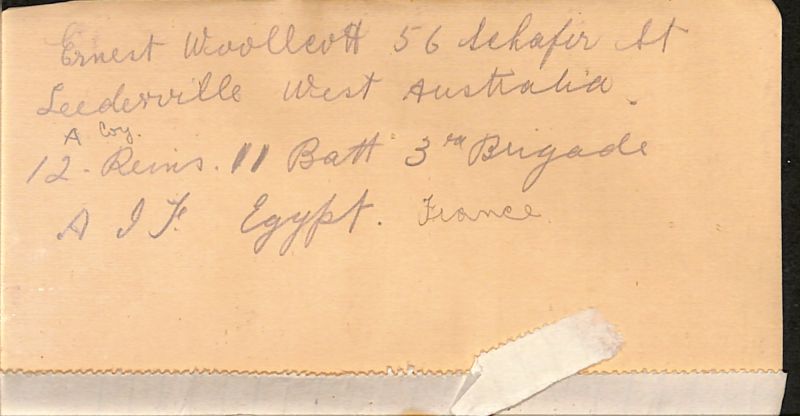 Ernest Woollcott 56 Schafer St
Leederville West Australia.
A Coy.
12 - Reins. 11 Batt 3rd Brigade
A I F. Egypt. France.